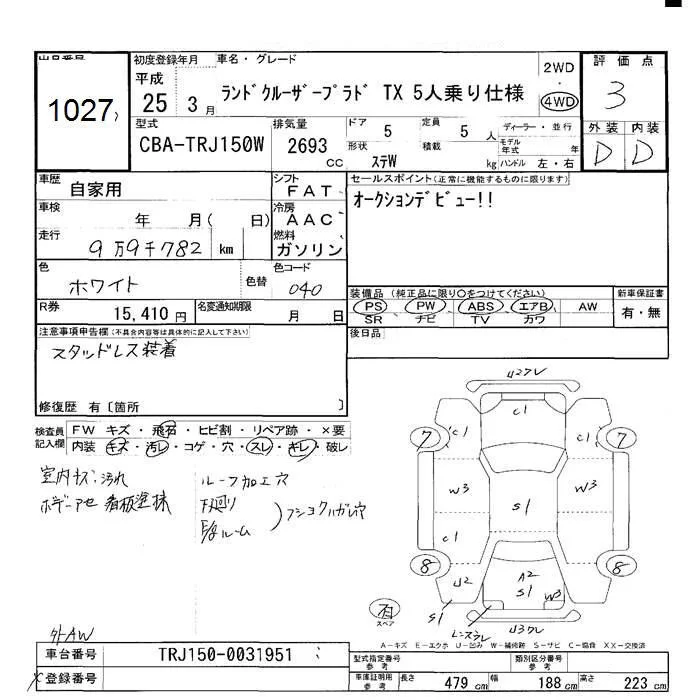 出品番号
1027
初度登録年月
平成
25 3月
車名・グレード
ランドクルーザープラド TX 5人乗り仕様
2WD
4WD
評価点
3
外装 内装
D D
型式
CBA-TRJ150W
排気量
2693
cc
ドア 5
定員 5人
形状 ステW
積載 kg
ディーラー・並行
モデル年式 年
ハンドル 左・右
車歴 自家用
シフト FAT
セールスポイント(正常に機能するものに限ります)
オークションデビュー!!
車検 年 月( 日)
冷房 AAC
走行 9万9千782 km
燃料 ガソリン
色 ホワイト
色替
色コード 040
R券 15,410円
名変通知期限 月 日
装備品(純正品に限り○をつけてください)
PS・PW・ABS・エアB・AW
SR ナビ TV カワ
新車保証書
有・無
後日品
注意事項申告欄(不具合内容等は具体的に記入して下さい)
スタッドレス装着
修復歴 有〔箇所 〕
検査員記入欄
FW キズ・飛石・ヒビ割・リペア跡・×要
内装 キズ・汚レ・コゲ・穴・スレ・キレ・破レ
室内キズ汚れ
ボデーアセ 看板塗抹
ルーフ加工穴
下廻り
ルーム
フショクハガレ穴
U2ワレ
C1
C1 C1
7 7
W3 W3
S1
C1
8 8
U2
A2
S1
W3
S1
レンズワレ
U3ワレ
スペア
外AW
A-キズ E-エクボ U-凹み W-補修跡 S-サビ C-腐食 XX-交換済
車台番号 TRJ150-0031951
登録番号
型式指定番号 参考
類別区分番号 参考
車庫証明用 参考
長さ 479cm 幅 188cm 高さ 223cm